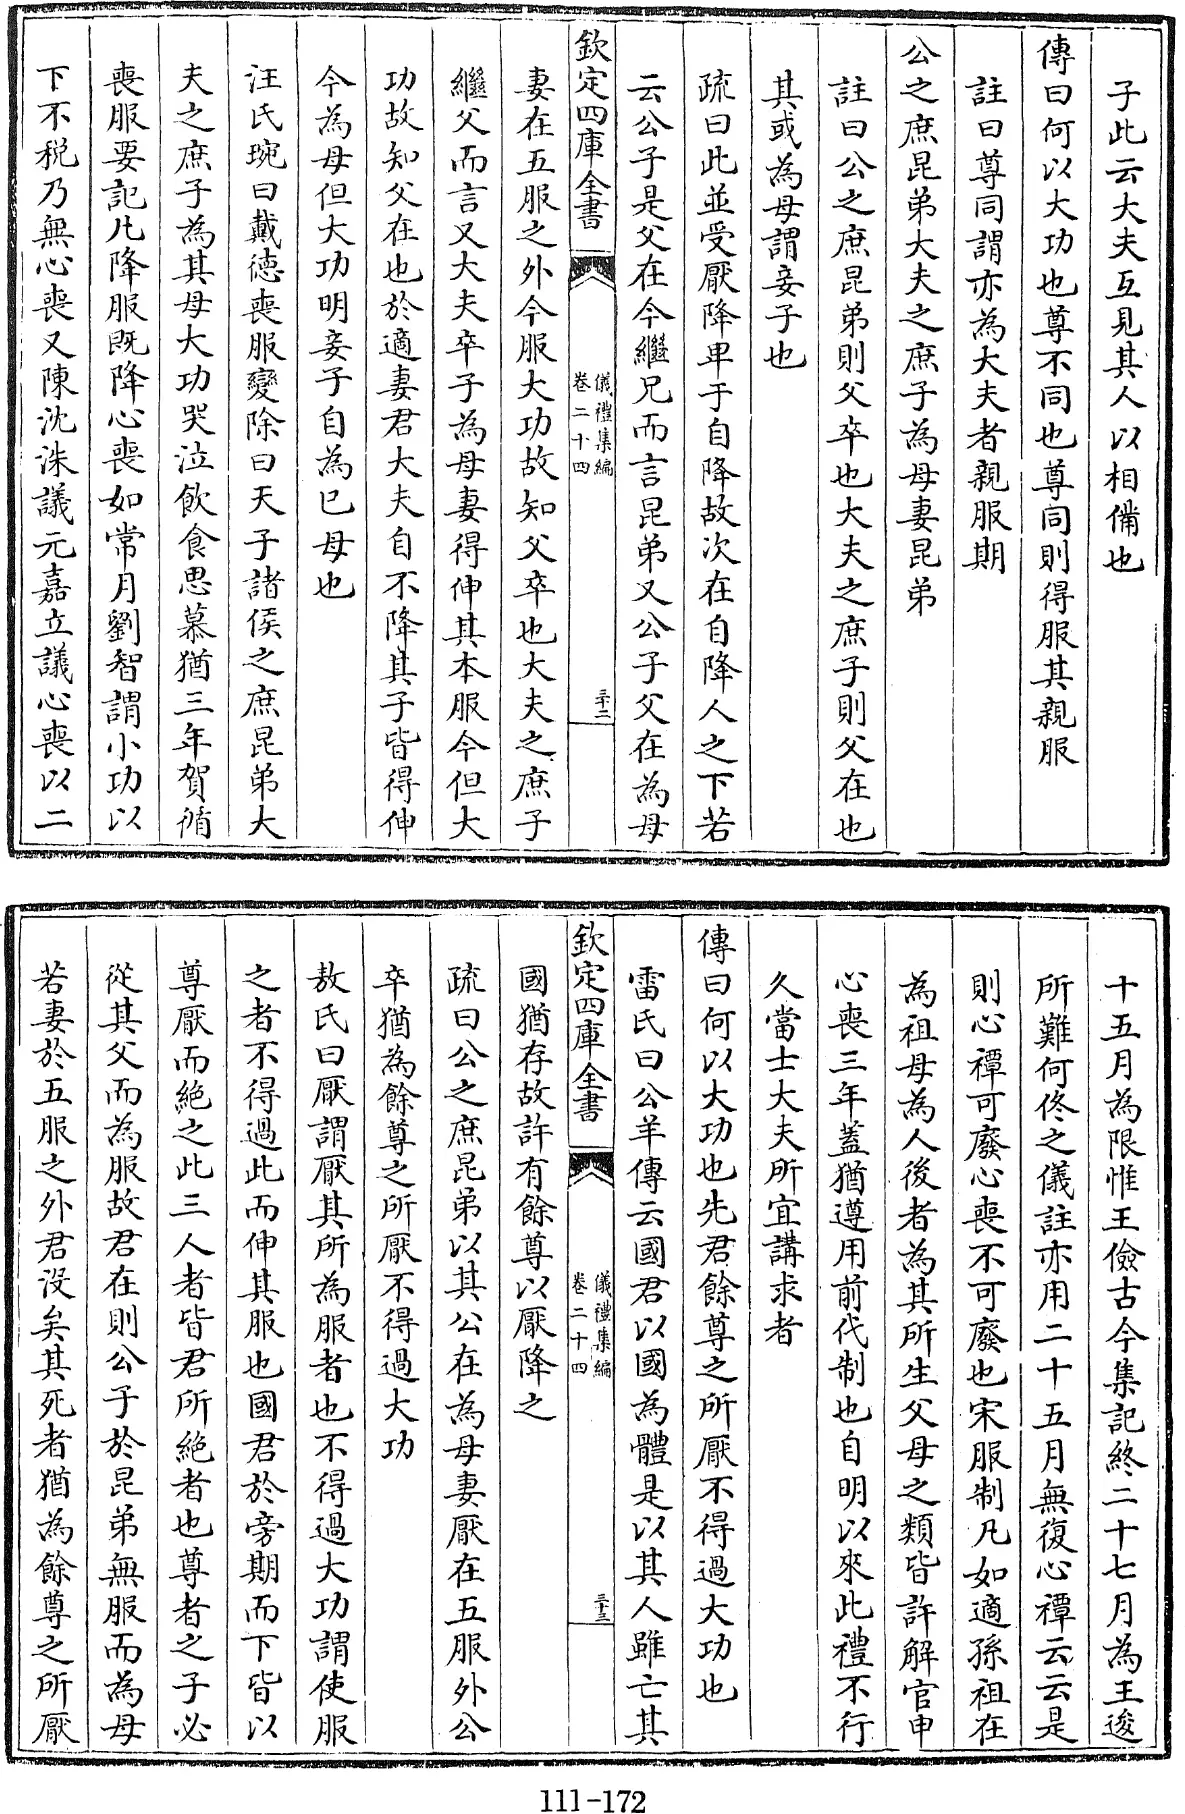 子此云大夫互見其人以相備也
傳曰何以大功也尊不同也尊同則得服其親服
註曰尊同謂亦為大夫者親服期
公之庶昆弟大夫之庶子為母妻昆弟
註曰公之庶昆弟則父卒也大夫之庶子則父在也
其或為母謂妾子也
疏曰此並受厭降卑于自降故次在自降人之下若
云公子是父在今繼兄而言昆弟又公子父在為母
欽定四庫全書
儀禮集編
卷二十四
三十二
妻在五服之外今服大功故知父卒也大夫之庶子
繼父而言又大夫卒子為母妻得伸其本服今但大
功故知父在也於適妻君大夫自不降其子皆得伸
今為母但大功明妾子自為已母也
汪氏琬曰戴德喪服變除曰天子諸侯之庶昆弟大
夫之庶子為其母大功哭泣飲食思慕猶三年賀循
喪服要記凡降服既降心喪如常月劉智謂小功以
下不税乃無心喪又陳沈洙議元嘉立議心喪以二
十五月為限惟王儉古今集記終二十七月為王逡
所難何佟之儀註亦用二十五月無復心禫云云是
則心禫可廢心喪不可廢也宋服制凡如適孫祖在
為祖母為人後者為其所生父母之類皆許解官申
心喪三年蓋猶遵用前代制也自明以來此禮不行
久當士大夫所宜講求者
傳曰何以大功也先君餘尊之所厭不得過大功也
雷氏曰公羊傳云國君以國為體是以其人雖亡其
欽定四庫全書
儀禮集編
卷二十四
三十三
國猶存故許有餘尊以厭降之
疏曰公之庶昆弟以其公在為母妻厭在五服外公
卒猶為餘尊之所厭不得過大功
敖氏曰厭謂厭其所為服者也不得過大功謂使服
之者不得過此而伸其服也國君於旁期而下皆以
尊厭而絕之此三人者皆君所絕者也尊者之子必
從其父而為服故君在則公子於昆弟無服而為母
若妻於五服之外君沒矣其死者猶為餘尊之所厭
111-172